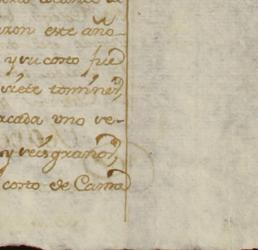 xon este año
y su costo fue
siete tomines,
acada uno ve-
y seis granos,
costo de Cama